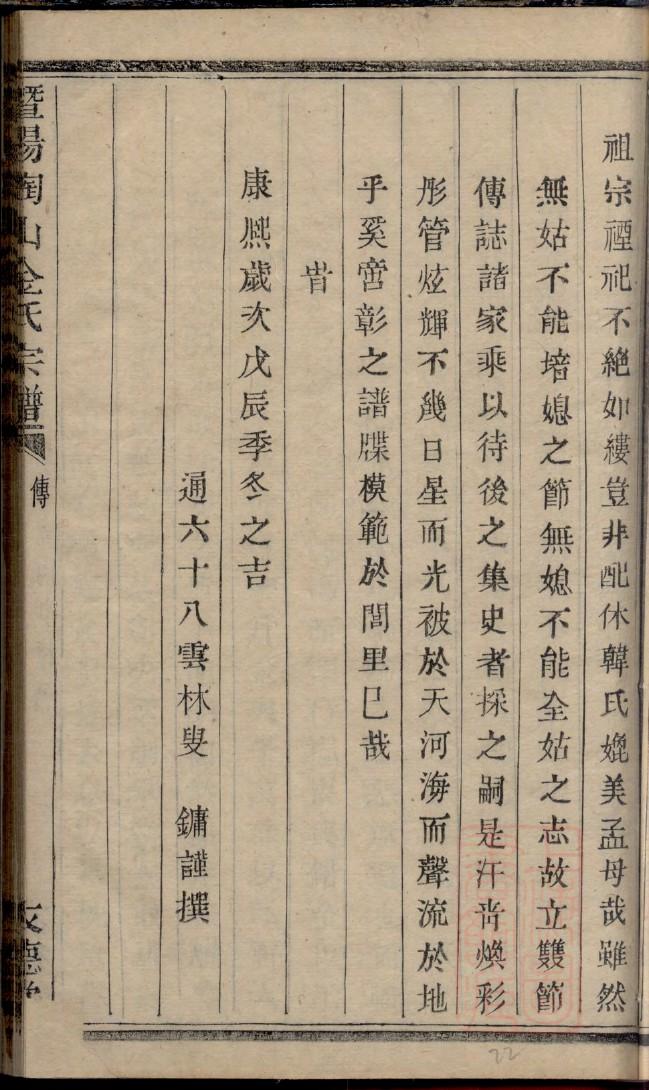 祖宗禋祀不絕如縷豈非配休韓氏媲美孟母哉雖然
無姑不能堷媳之節無媳不能全姑之志故立雙節
傳誌諸家乘以待後之集史者採之嗣是汗靑煥彩
彤管炫輝不幾日星而光被於天河海而聲流於地
乎奚啻彰之譜牒模範於閭里已哉
旹
康熙歲次戊辰季冬之吉
通六十八雲林叟 鏞謹撰
暨陽陶山金氏宗譜
傳
22